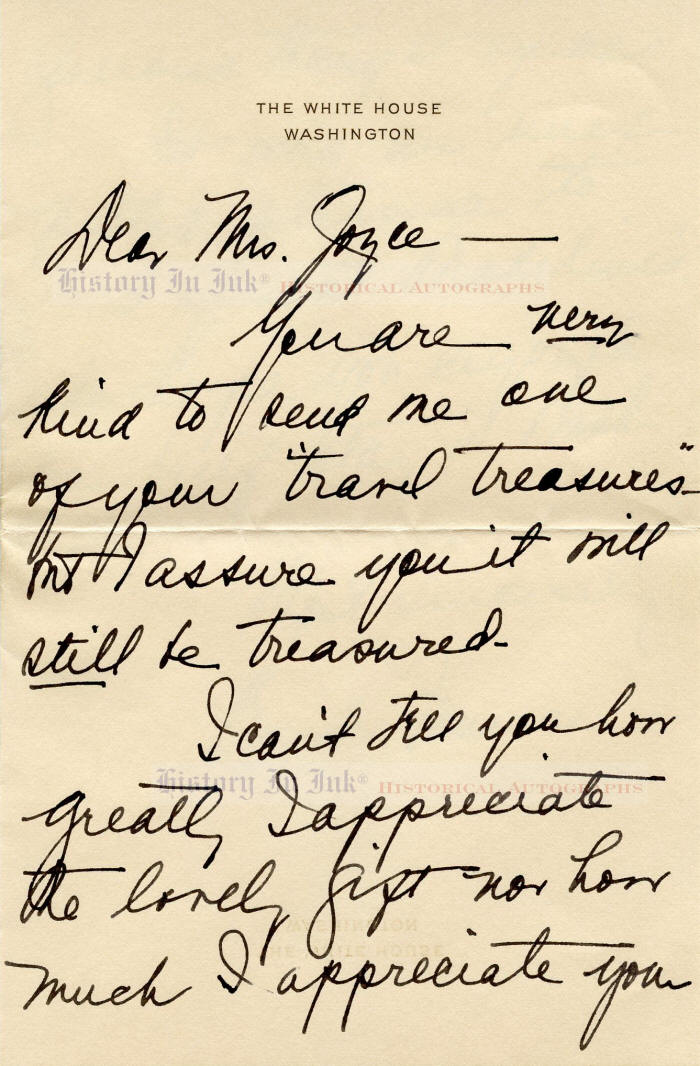 THE WHITE HOUSE
WASHINGTON
Dear Mrs. Joyce —
History In Ink® HISTORICAL AUTOGRAPHS
You are very
kind to send me one
of your "travel treasures" -
but I assure you it will
still be treasured -
I can't tell you how
History In Ink® HISTORICAL AUTOGRAPHS
greatly I appreciate
the lovely gift nor how
WASHINGTON
THE WHITE HOUSE
much I appreciate your